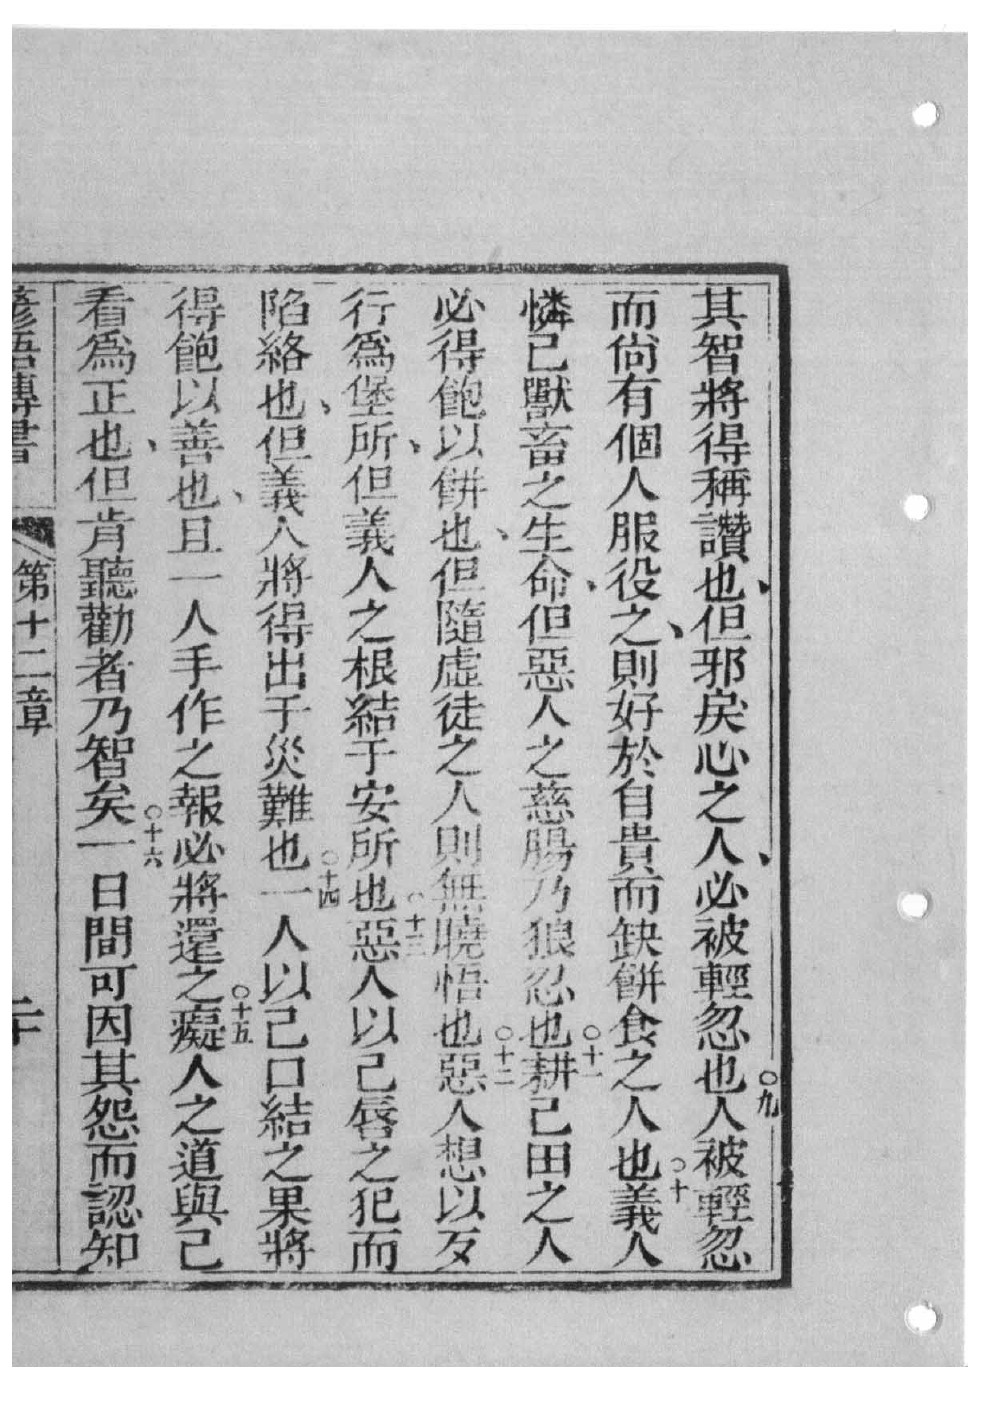 其智將得稱讚也、但邪戾心之人、必被輕忽也○九人被輕忽
而尙有個人服役之、則好於自貴而缺餅食之人也○十義人
憐己獸畜之生命、但惡人之慈腸乃狼忍也○十一耕己田之人
必得飽以餅也、但隨虛徒之人則無曉悟也○十二惡人想以歹
行爲堡所、但義人之根結于安所也○十三惡人以己唇之犯而
陷絡也、但義人將得出于災難也○十四一人以己口結之果將
得飽以善也、且一人手作之報必將還之○十五癡人之道與己
看爲正也、但肯聽勸者乃智矣○十六一日間可因其怨而認知
諺語傳書 第十二章 二十